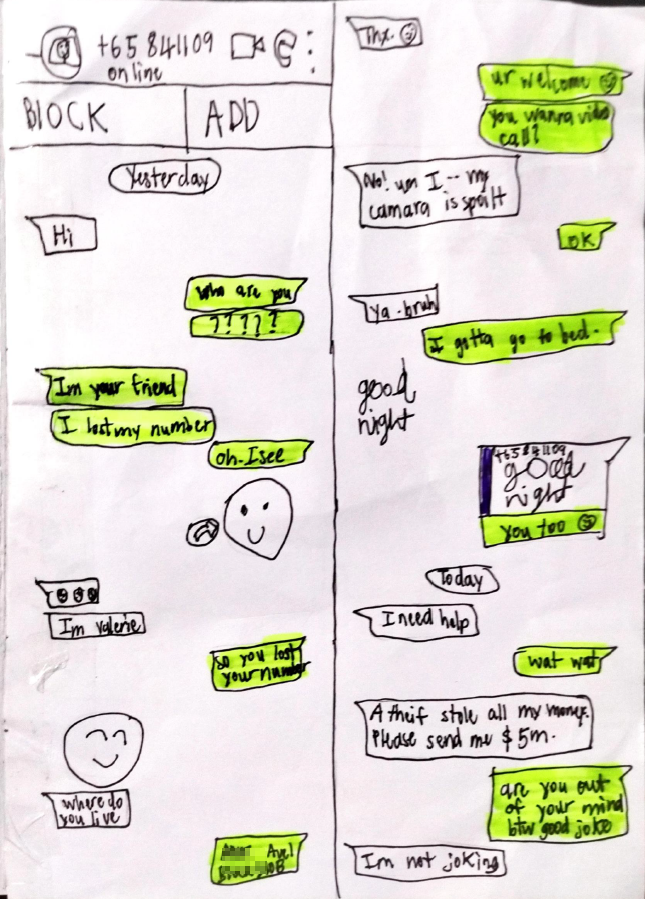 +65 841109
online
BLOCK
ADD
Yesterday
Hi
who are you
?????
Im your friend
I lost my number
oh. I see
Im valerie
so you lost
your number
where do
you live
Ave1
Thx.
ur welcome
you wanna video
call?
No! um I -- my
camara is spoilt
OK
Ya. bruh
I gotta go to bed.
good
night
+65 841109
good
night
you too
Today
I need help
wat wat
A theif stole all my money.
Please send me $5m.
are you out
of your mind
btw good joke
Im not joking